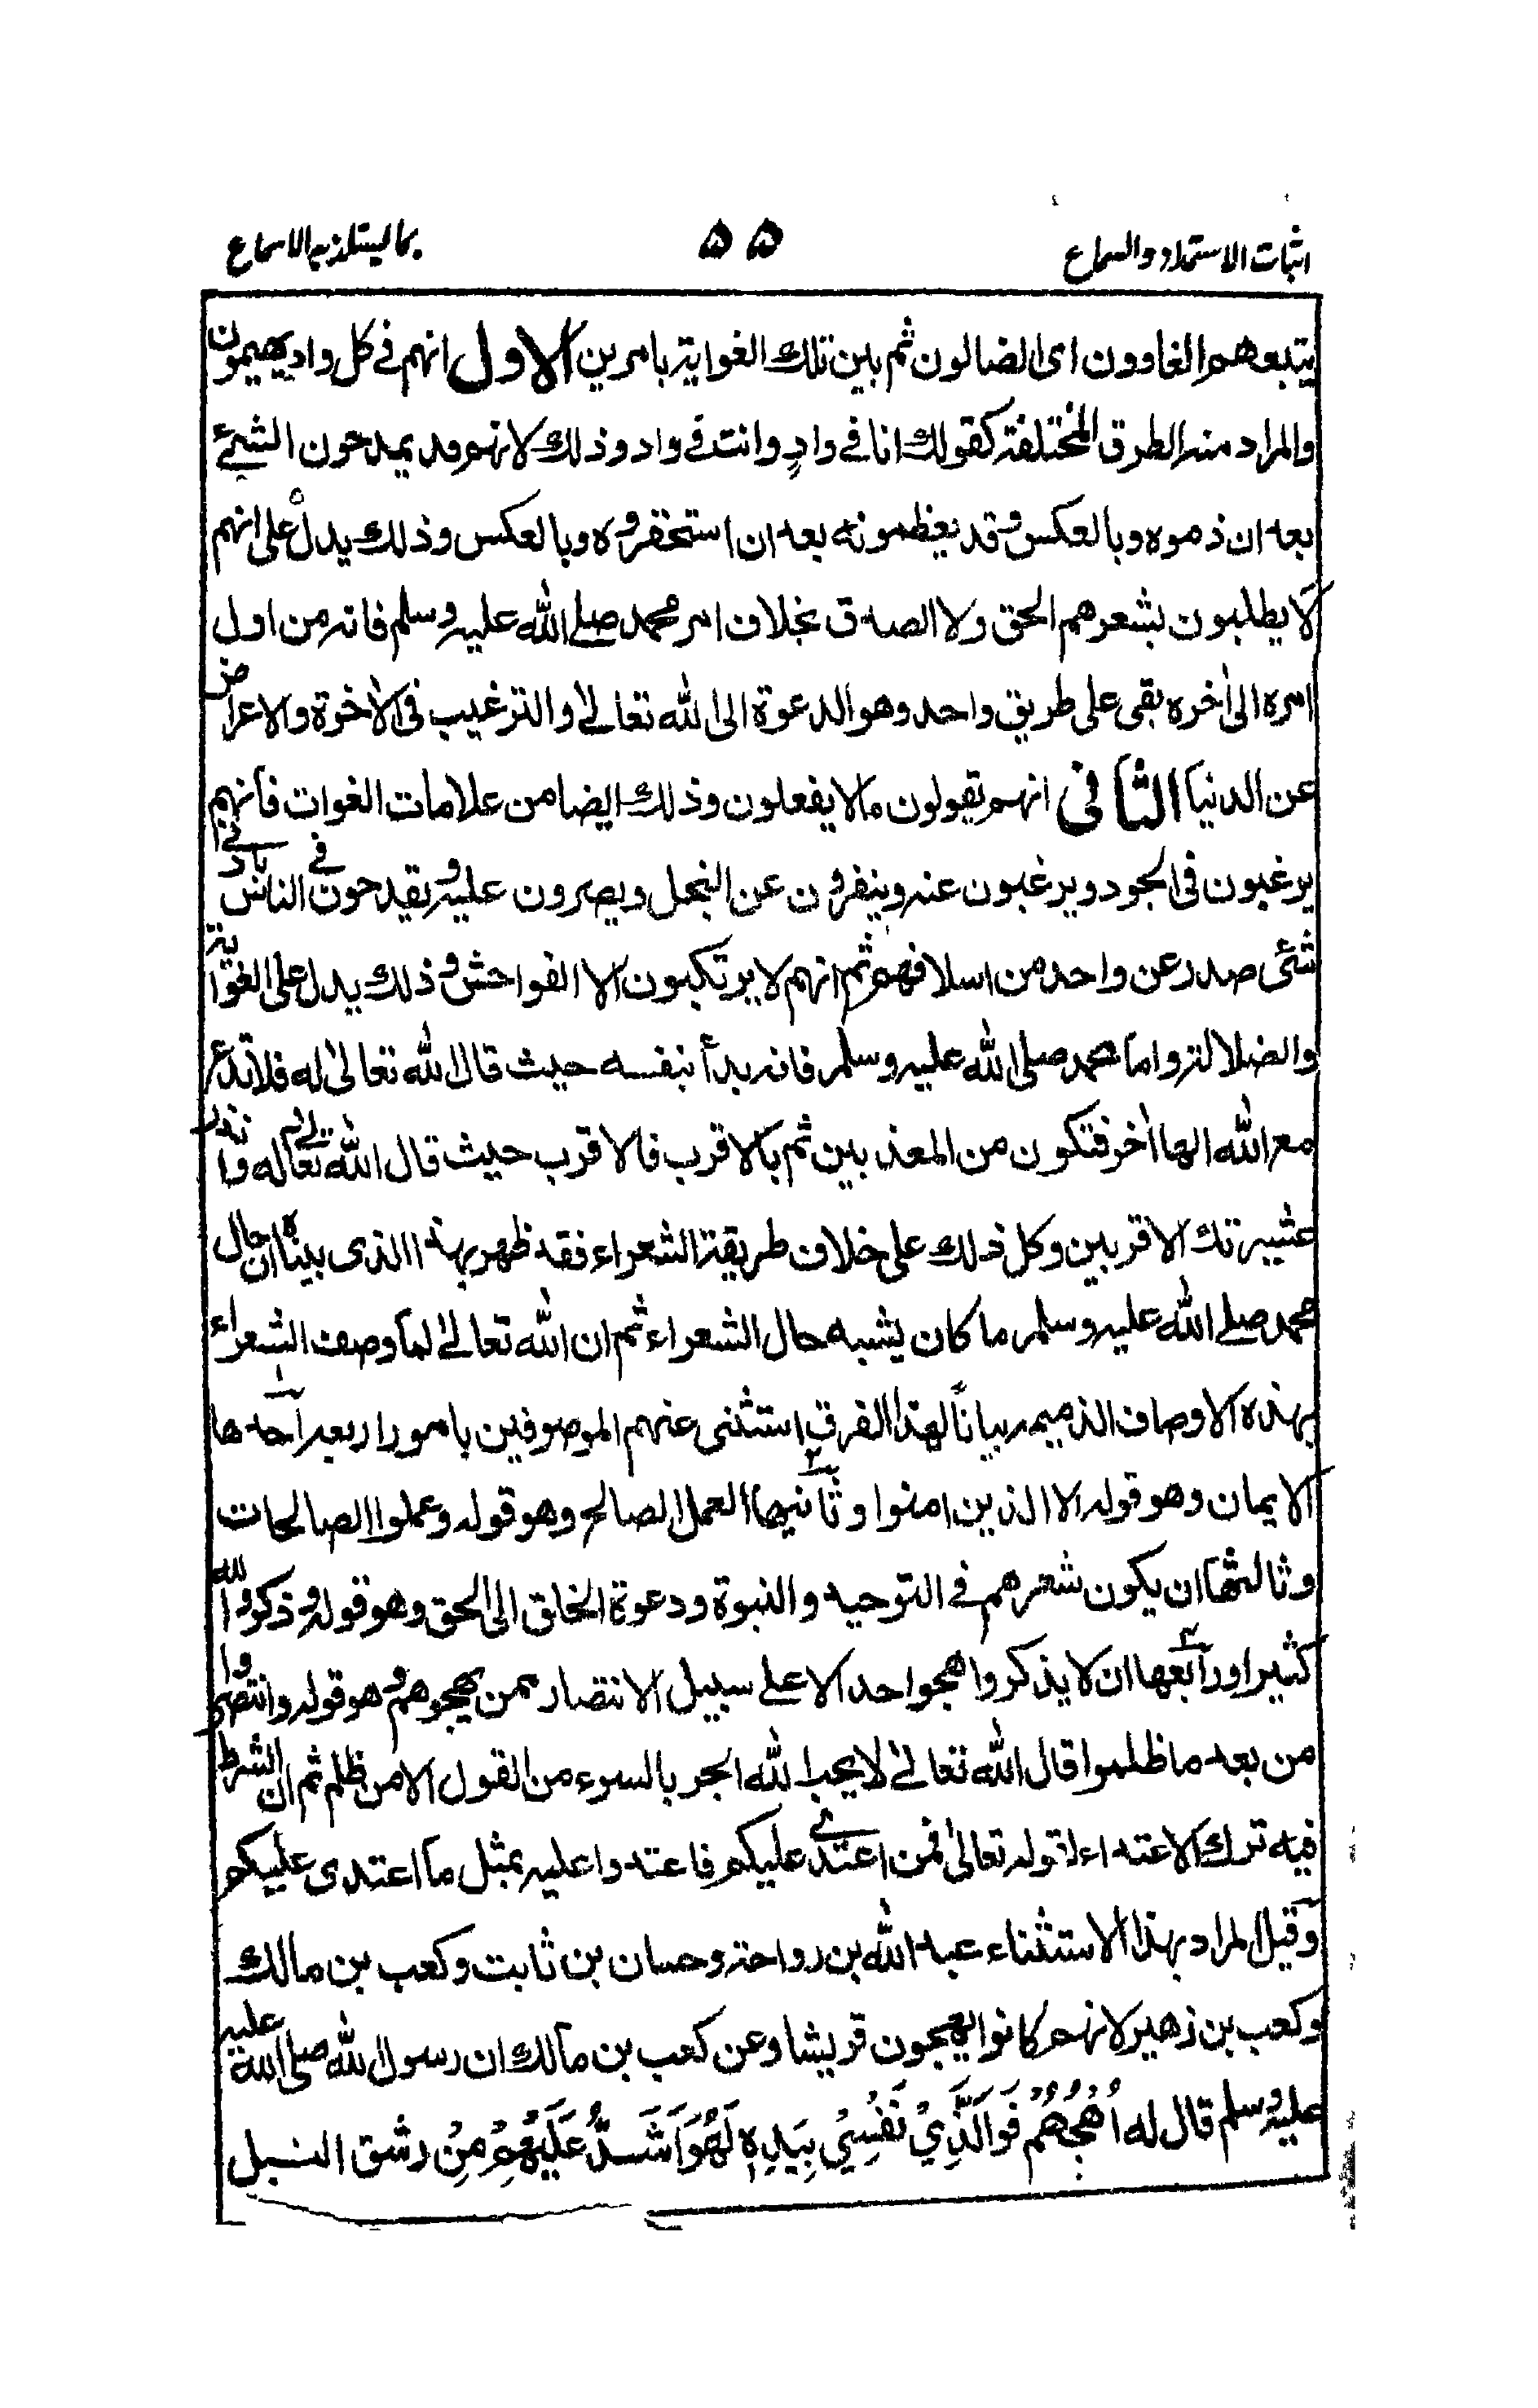 اثبات الاستمداد والسماع ۵۵ بما يستلذ به الاسماع
يتبعهم الغاوون اى الضالون ثم بين تلك الغواية بامرين الاول انهم في كل واد يهيمون
والمراد منه الطرق المختلفة كقولك انا في وادٍ وانت في واد وذلك لانهم قد يمدحون الشيئ
بعد ان ذموه وبالعكس وقد يعظمونه بعد ان استحقروه وبالعكس وذلك يدل على انهم
لا يطلبون بشعرهم الحق ولا الصدق بخلاف امر محمد صلے الله عليه وسلم فانه من اول
امره الى اٰخره بقى على طريق واحد وهو الدعوة الى الله تعالےٰ والترغيب فى الاٰخرة والاعراض
عن الدنيا الثانى انهم يقولون مالا يفعلون وذلك ايضا من علامات الغوات فانهم
يرغبون فى الجود ويرغبون عنه وينفرون عن البخل ويصرون عليه ويقدحون في الناس بادنےٰ
شئى صدر عن واحد من اسلافهم ثم انهم لا يرتكبون الا الفواحش وذلك يدل على الغواية
والضلالة واما محمد صلى الله عليه وسلم فانه بدأ بنفسه حيث قال الله تعالىٰ له فلا تدع
مع الله الها اٰخر فتكون من المعذبين ثم بالاقرب فالاقرب حيث قال الله تعالےٰ له وانذر
عشيرتك الاقربين وكل ذلك على خلاف طريقة الشعراء فقد ظهر بهذا الذى بيناه ان حال
محمد صلے الله عليه وسلم ما كان يشبه حال الشعراء ثم ان الله تعالےٰ لما وصف الشعراء
بهذه الاوصاف الذميمه بياناً لهذا الفرق استثنى عنهم الموصوفين بامور اربعه احدها
الايمان وهو قوله الا الذين امنوا وثانيها العمل الصالح وهو قوله وعملوا الصالحات
وثالثها ان يكون شعرهم في التوحيد والنبوة ودعوة الخلق الى الحق وهو قوله وذكروا الله
كثيرا ورابعها ان لا يذكروا هجو احد الا علے سبيل الانتصار ممن يهجوهم وهو قوله وانتصروا
من بعد ما ظلموا قال الله تعالےٰ لا يحب الله الجهر بالسوء من القول الا من ظلم ثم ان الشرط
فيه ترك الاعتداء لقوله تعالىٰ فمن اعتدےٰ عليكم فاعتدوا عليه بمثل ما اعتدى عليكم
وقيل المراد بهذا الاستثناء عبد الله بن رواحه وحسان بن ثابت وكعب بن مالك
وكعب بن زهير لانهم كانوا يهجون قريشا وعن كعب بن مالك ان رسول الله صلى الله عليه
عليه وسلم قال له اُهْجُهُمْ فَوَالَّذِيْ نَفْسِيْ بِيَدِهٖ لَهُوَ اَشَدُّ عَلَيْهِمْ مِنْ رشق النبل